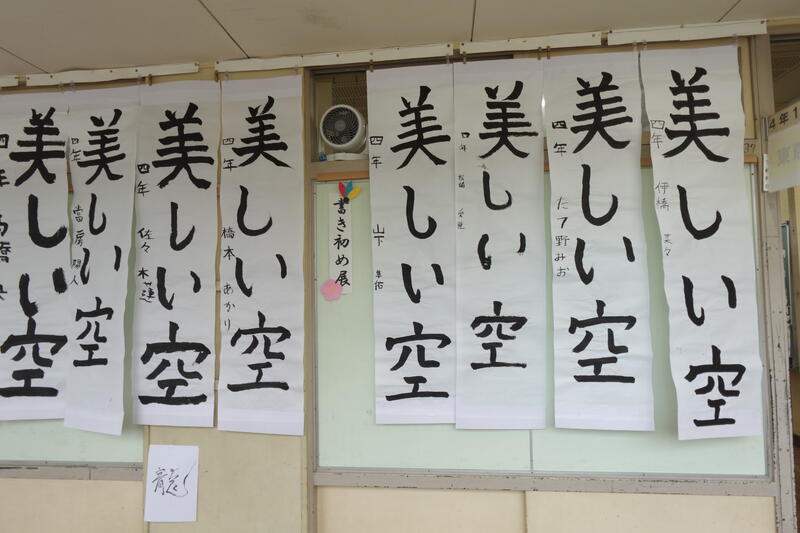 4年1
美しい空
四年 伊橋 菜々
美しい空
四年 野みお
美しい空
四年
美しい空
四年 山下
書き初め展
美しい空
四年 橋本 あかり
美しい空
四年 佐々木蓮
美しい空
四年 當房 陽人
美しい空
四年 高橋
龍